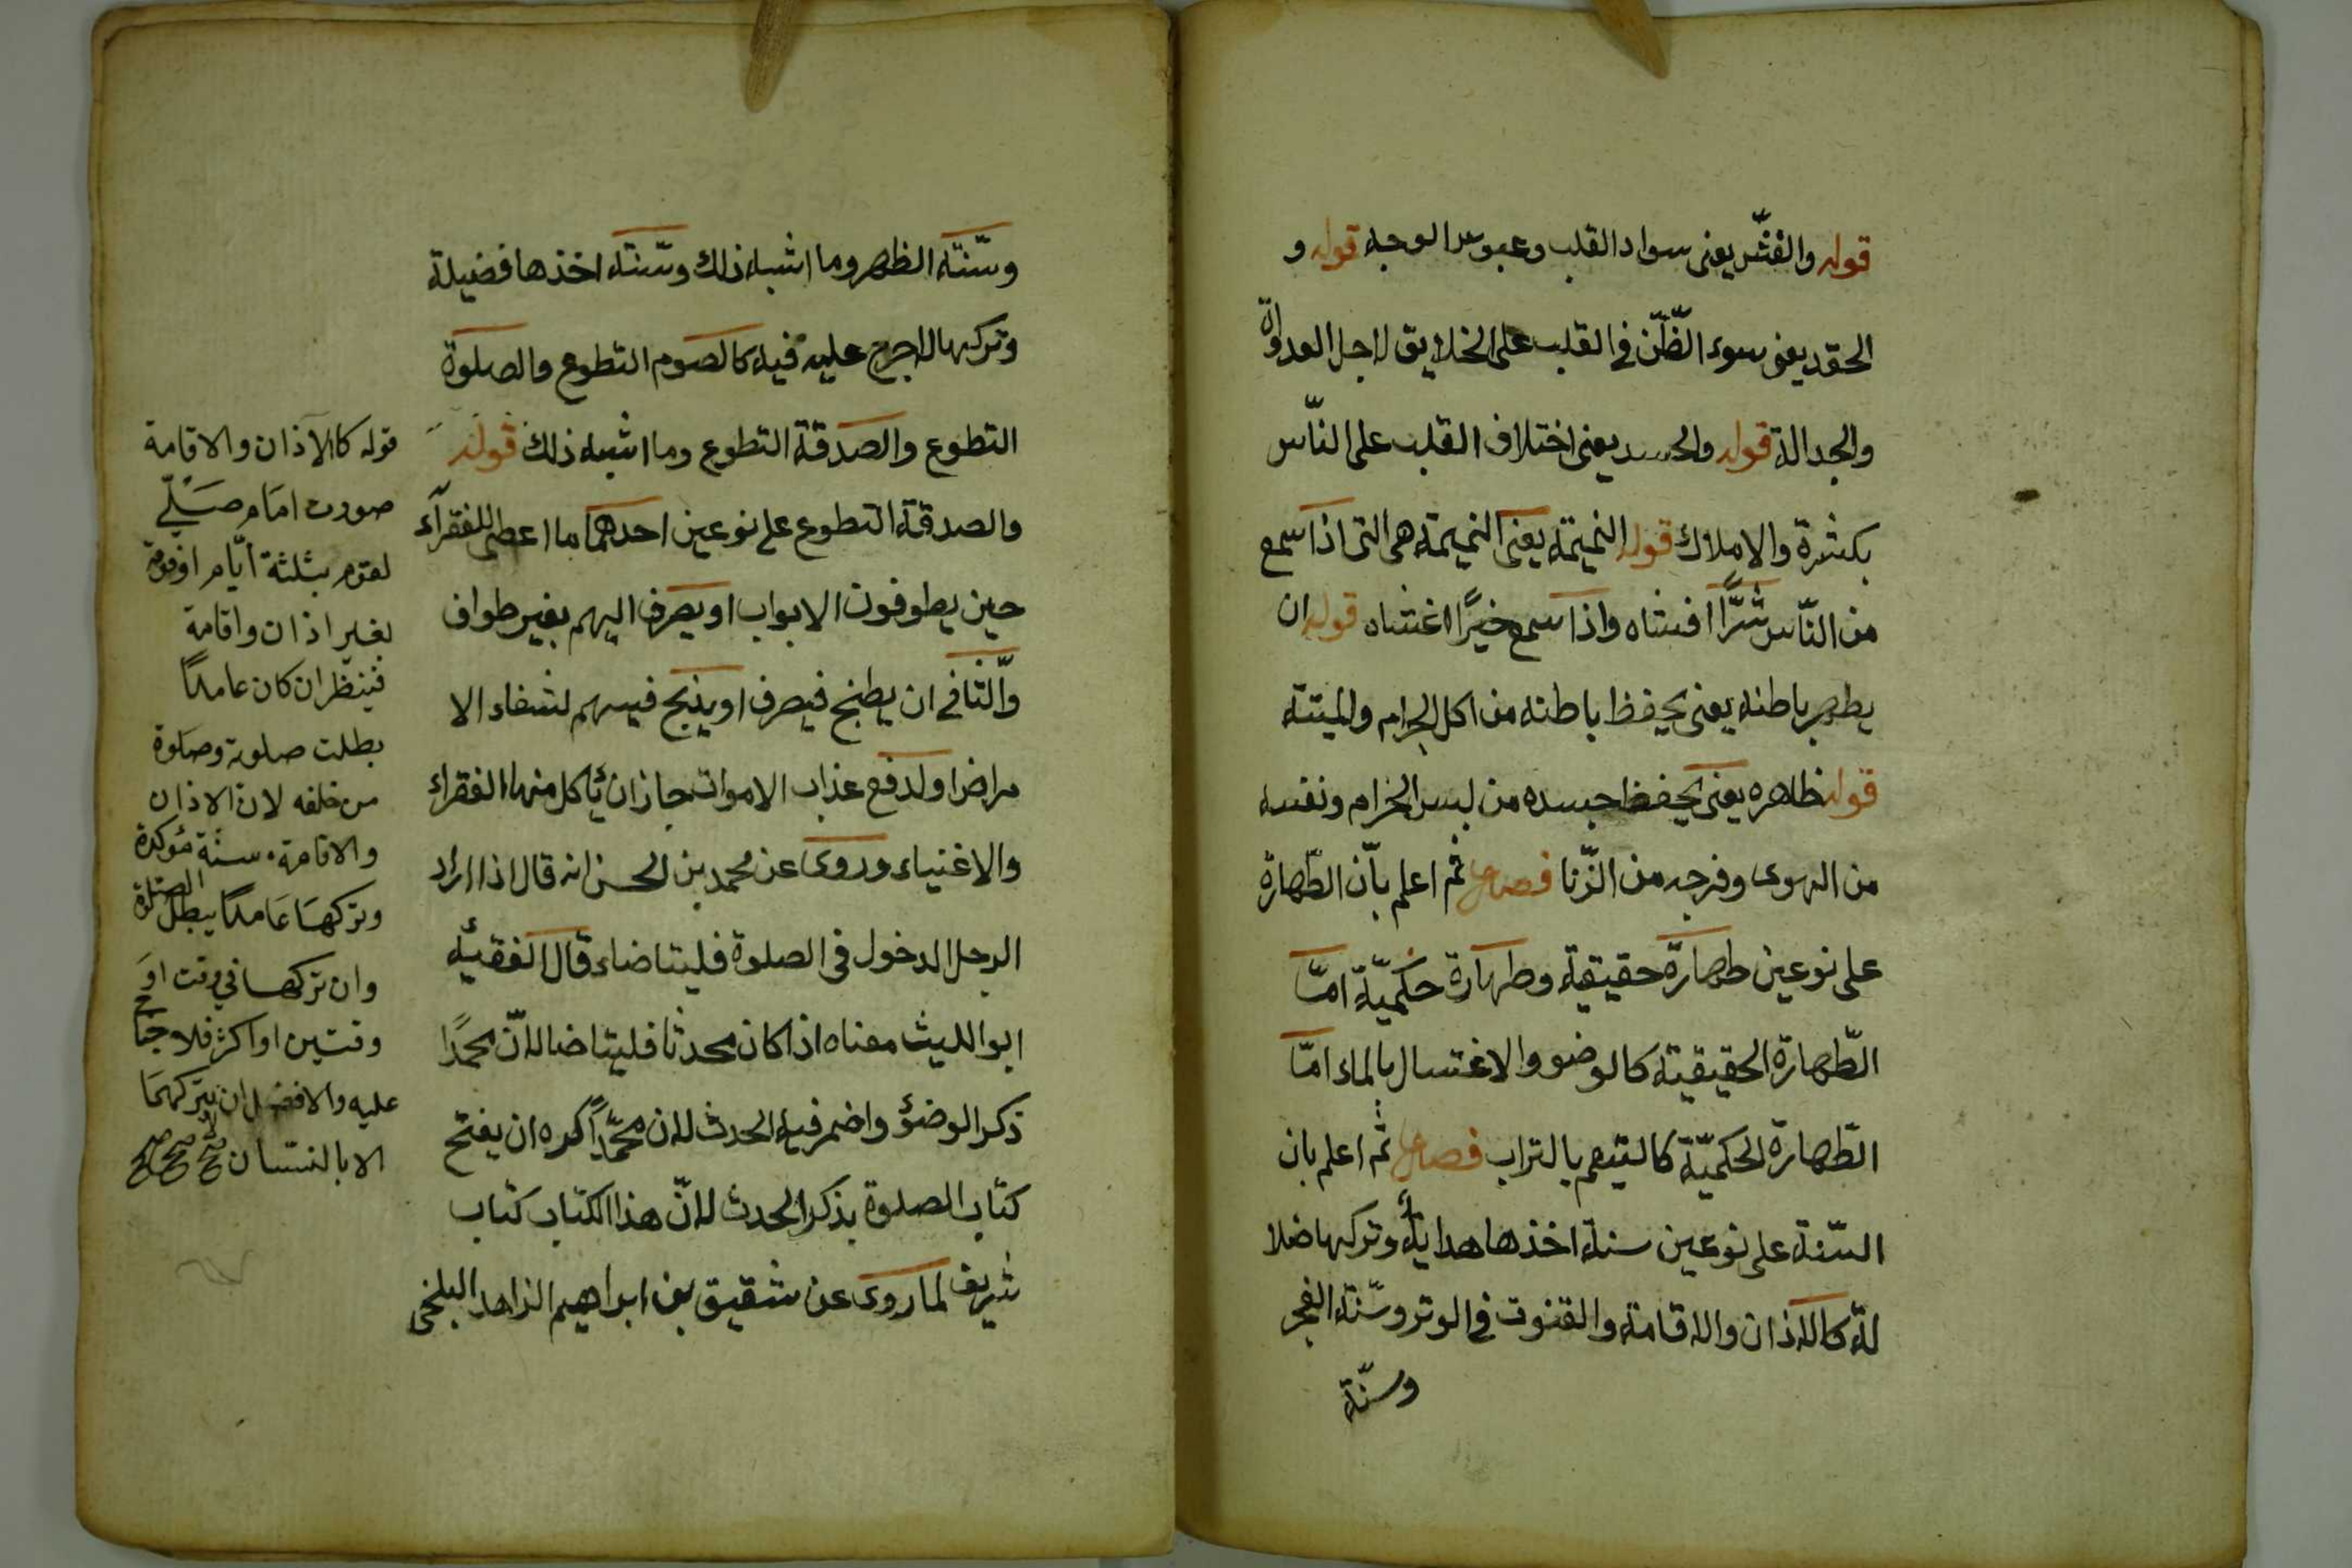 قوله والغشّ يعنى سواد القلب وعبوس الوجه قوله و
الحقد يعنى سوء الظّنّ فى القلب على الخلايق لاجل العداوة
والجدالة قوله والحسد يعنى اختلاف القلب على النّاس
بكثرة والاملاك قوله النميمة يعنى النميمة هى التى اذا سمع
من النّاس شرًّا افشاه واذا سمع خيرًا اغشاه قوله ان
يطهر باطنه يعنى يحفظ باطنه من اكل الحرام والميتة
قوله ظاهره يعنى يحفظ جسده من لبس الحرام ونفسه
من الهوى وفرجه من الزّنا فصل ثم اعلم بأنّ الطّهارة
على نوعين طهارة حقيقية وطهارة حكميّة امّا
الطّهارة الحقيقيّة كالوضوء والاغتسال بالماء امّا
الطّهارة الحكميّة كالتيمم بالتراب فصل ثم اعلم بان
السّنة على نوعين سنة اخذها هداية وتركها ضلا
لة كالاذان والاقامة والقنوت فى الوتر وسّنة الفجر
وسنّة
وسنّة الظهر وما اشبه ذلك وسّنة اخذها فضيلة
وتركها لا حرج عليه فيه كالصوم التطوع والصلوة
التطوع والصدقة التطوع وما اشبه ذلك قوله
والصدقة التطوع على نوعين احدهما ما اعطى للفقرآء
حين يطوفون الابواب او يصرف اليهم بغير طواف
والّثانى ان يطبخ فيصرف او يذبح فيسهم لشفاء الا
مراض او لدفع عذاب الاموات جاز ان يأكل منها الفقراء
والاغنياء وروى عن محمد بن الحسن انه قال اذا اراد
الرجل الدخول فى الصلوة فليتاضاء قال الفقيه
ابو الليث معناه اذا كان محدثا فليتاضا لانّ محمدًا
ذكر الوضؤ واضمر فيه الحدث لان محمّداً كره ان يفتح
كتاب الصلوة بذكر الحدث لانّ هذا الكتاب كتاب
شريف لما روى عن شقيق بن ابراهيم الزاهد البلخى
قوله كالآذان والاقامة
صورت امام صَلّي
لقوم بثلثة ايّام او قومة
بغير اذان واقامة
فينظر ان كان عامدًا
بطلت صلوته وصلوة
من خلفه لان الاذان
والاقامة سنة مؤكدة
وتركها عَامدًا يبطل الصلوة
وان تركها في وقت او
وقتين او اكثر فلا جناح
عليه والافضل ان لا يتركهما
الا بالنسيان صح صح صح